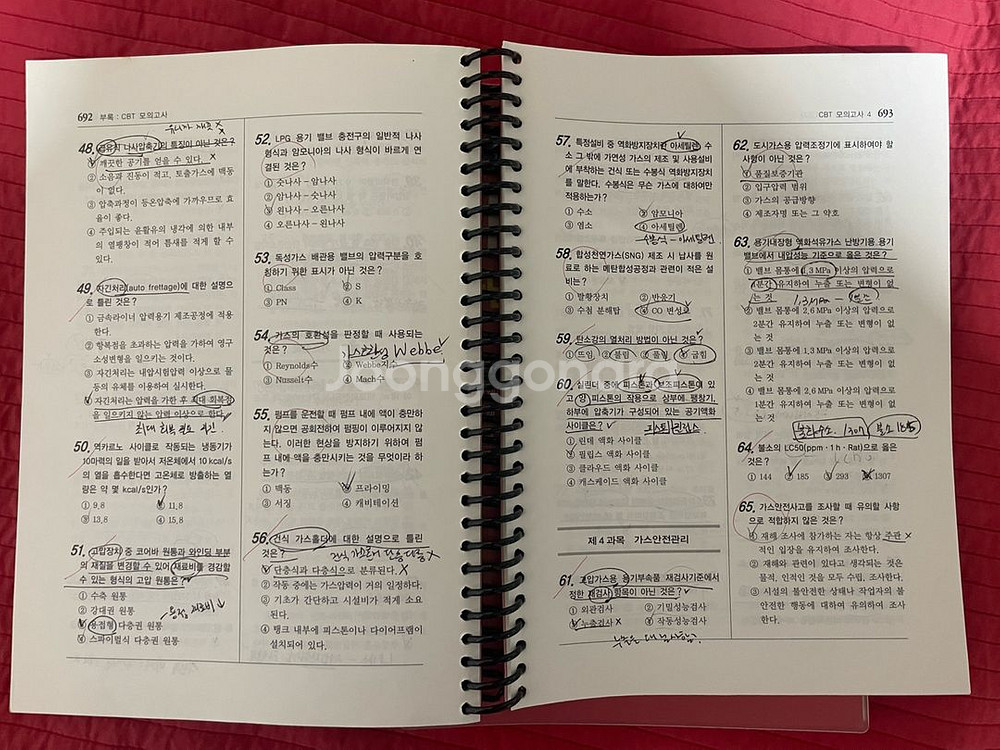 692 부록 : CBT 모의고사
48. 급유식 나사압축기의 특징이 아닌 것은?
① 깨끗한 공기를 얻을 수 있다.
② 소음과 진동이 적고, 토출가스에 맥동
이 없다.
③ 압축과정이 등온압축에 가까우므로 효
율이 좋다.
④ 주입되는 윤활유의 냉각에 의한 내부
의 열팽창이 적어 틈새를 적게 할 수
있다.
49. 자긴처리(auto frettage)에 대한 설명으
로 틀린 것은?
① 금속라이너 압력용기 제조공정에 적용
한다.
② 항복점을 초과하는 압력을 가하여 영구
소성변형을 일으키는 것이다.
③ 자긴처리는 내압시험압력 이상으로 물
등의 유체를 이용하여 실시한다.
④ 자긴처리는 압력을 가한 후 최대 회복점
을 일으키지 않는 압력 이상으로 한다.
50. 역카르노 사이클로 작동되는 냉동기가
10마력의 일을 받아서 저온체에서 10 kcal/s
의 열을 흡수한다면 고온체로 방출하는 열
량은 약 몇 kcal/s인가?
① 9.8 ② 11.8
③ 13.8 ④ 15.8
51. 고압장치 중 코어바 원통과 와인딩 부분
의 재질을 변경할 수 있어 재료비를 경감할
수 있는 형식의 고압 원통은?
① 수축 원통
② 강대권 원통
③ 용접형 다층권 원통
④ 스파이럴식 다층권 원통
52. LPG 용기 밸브 충전구의 일반적 나사
형식과 암모니아의 나사 형식이 바르게 연
결된 것은?
① 숫나사 – 암나사
② 암나사 – 숫나사
③ 왼나사 – 오른나사
④ 오른나사 – 왼나사
53. 독성가스 배관용 밸브의 압력구분을 호
칭하기 위한 표시가 아닌 것은?
① Class ② S
③ PN ④ K
54. 가스의 호환성을 판정할 때 사용되는
것은?
Webbe
① Reynolds수 ② Webbe지수
③ Nusselt수 ④ Mach수
55. 펌프를 운전할 때 펌프 내에 액이 충만하
지 않으면 공회전하여 펌핑이 이루어지지 않
는다. 이러한 현상을 방지하기 위하여 펌
프 내에 액을 충만시키는 것을 무엇이라 하
는가?
① 맥동 ② 프라이밍
③ 서징 ④ 캐비테이션
56. 건식 가스홀더에 대한 설명으로 틀린
것은?
① 단층식과 다층식으로 분류된다.
② 작동 중에는 가스압력이 거의 일정하다.
③ 기초가 간단하고 시설비가 적게 소요
된다.
④ 탱크 내부에 피스톤이나 다이어프램이
설치되어 있다.
CBT 모의고사 4 693
57. 특정설비 중 역화방지장치란 아세틸렌, 수
소 그 밖에 가연성 가스의 제조 및 사용설비
에 부착하는 건식 또는 수봉식 역화방지장치
를 말한다. 수봉식은 무슨 가스에 대하여만
적용하는가?
① 수소 ② 암모니아
③ 염소 ④ 아세틸렌
수봉식 – 아세틸렌
58. 합성천연가스(SNG) 제조 시 납사를 원
료로 하는 메탄합성공정과 관련이 적은 설
비는?
① 탈황장치 ② 반응기
③ 수첨 분해탑 ④ CO 변성로
59. 탄소강의 열처리 방법이 아닌 것은?
① 뜨임 ② 불림 ③ 풀림 ④ 굽힘
60. 실린더 중에 피스톤과 보조피스톤이 있
고 양 피스톤의 작용으로 상부에 팽창기,
하부에 압축기가 구성되어 있는 공기액화
사이클은?
① 린데 액화 사이클
② 필립스 액화 사이클
③ 클라우드 액화 사이클
④ 캐스케이드 액화 사이클
제 4 과목 가스안전관리
61. 고압가스용 용기부속품 재검사기준에서
정한 재검사 항목이 아닌 것은?
① 외관검사 ② 기밀성능검사
③ 누출검사 ④ 작동성능검사
62. 도시가스용 압력조정기에 표시하여야 할
사항이 아닌 것은?
① 품질보증기관
② 입구압력 범위
③ 가스의 공급방향
④ 제조자명 또는 그 약호
63. 용기내장형 액화석유가스 난방기용 용기
밸브에서 내압성능 기준으로 옳은 것은?
① 밸브 몸통에 1.3 MPa 이상의 압력으로
1분간 유지하여 누출 또는 변형이 없
는 것
② 밸브 몸통에 2.6 MPa 이상의 압력으로
2분간 유지하여 누출 또는 변형이 없
는 것
③ 밸브 몸통에 1.3 MPa 이상의 압력으로
2분간 유지하여 누출 또는 변형이 없
는 것
④ 밸브 몸통에 2.6 MPa 이상의 압력으로
1분간 유지하여 누출 또는 변형이 없
는 것
64. 불소의 LC50(ppm · 1 h · Rat)으로 옳은
것은?
① 144 ② 185 ③ 293 ④ 1307
65. 가스안전사고를 조사할 때 유의할 사항
으로 적합하지 않은 것은?
① 재해 조사에 참가하는 자는 항상 주관
적인 입장을 유지하여 조사한다.
② 재해와 관련이 있다고 생각되는 것은
물적, 인적인 것을 모두 수립, 조사한다.
③ 시설의 불안전한 상태나 작업자의 불
안전한 행동에 대하여 유의하여 조사
한다.
Joonggonara